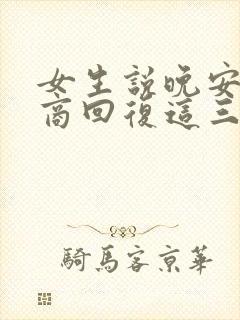 女生說晚安
商回復這三
騎馬客京華